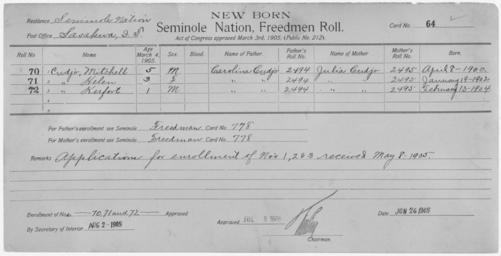 NEW BORN
Residence Seminole Nation
Seminole Nation, Freedmen Roll.
Card No. 64
Post Office Sasakwa, I.T.
Act of Congress approved March 3rd, 1905. (Public No. 212).
Roll No Name Age March 4, 1905. Sex. Blood. Name of Father. Father's Roll No. Name of Mother. Mother's Roll No. Born.
70 Cudjo, Mitchell 5 M Caroline Cudjo 2494 Julia Cudjo 2495 April 8-1900.
71 " Helen 3 F " " 2494 " " 2495 January 19-1902.
72 " Kerfoot 1 M " " 2494 " " 2495 February 13-1904
For Father's enrollment see Seminole Freedman Card No. 778
For Mother's enrollment see Seminole Freedman Card No. 778
Remarks Application for enrollment of No's 1, 2 & 3 received May 8-1905.
Enrollment of Nos. 70, 71 and 72 Approved
Approved
Date JUN 26 1905
By Secretary of Interior AUG 2-1905
Chairman.